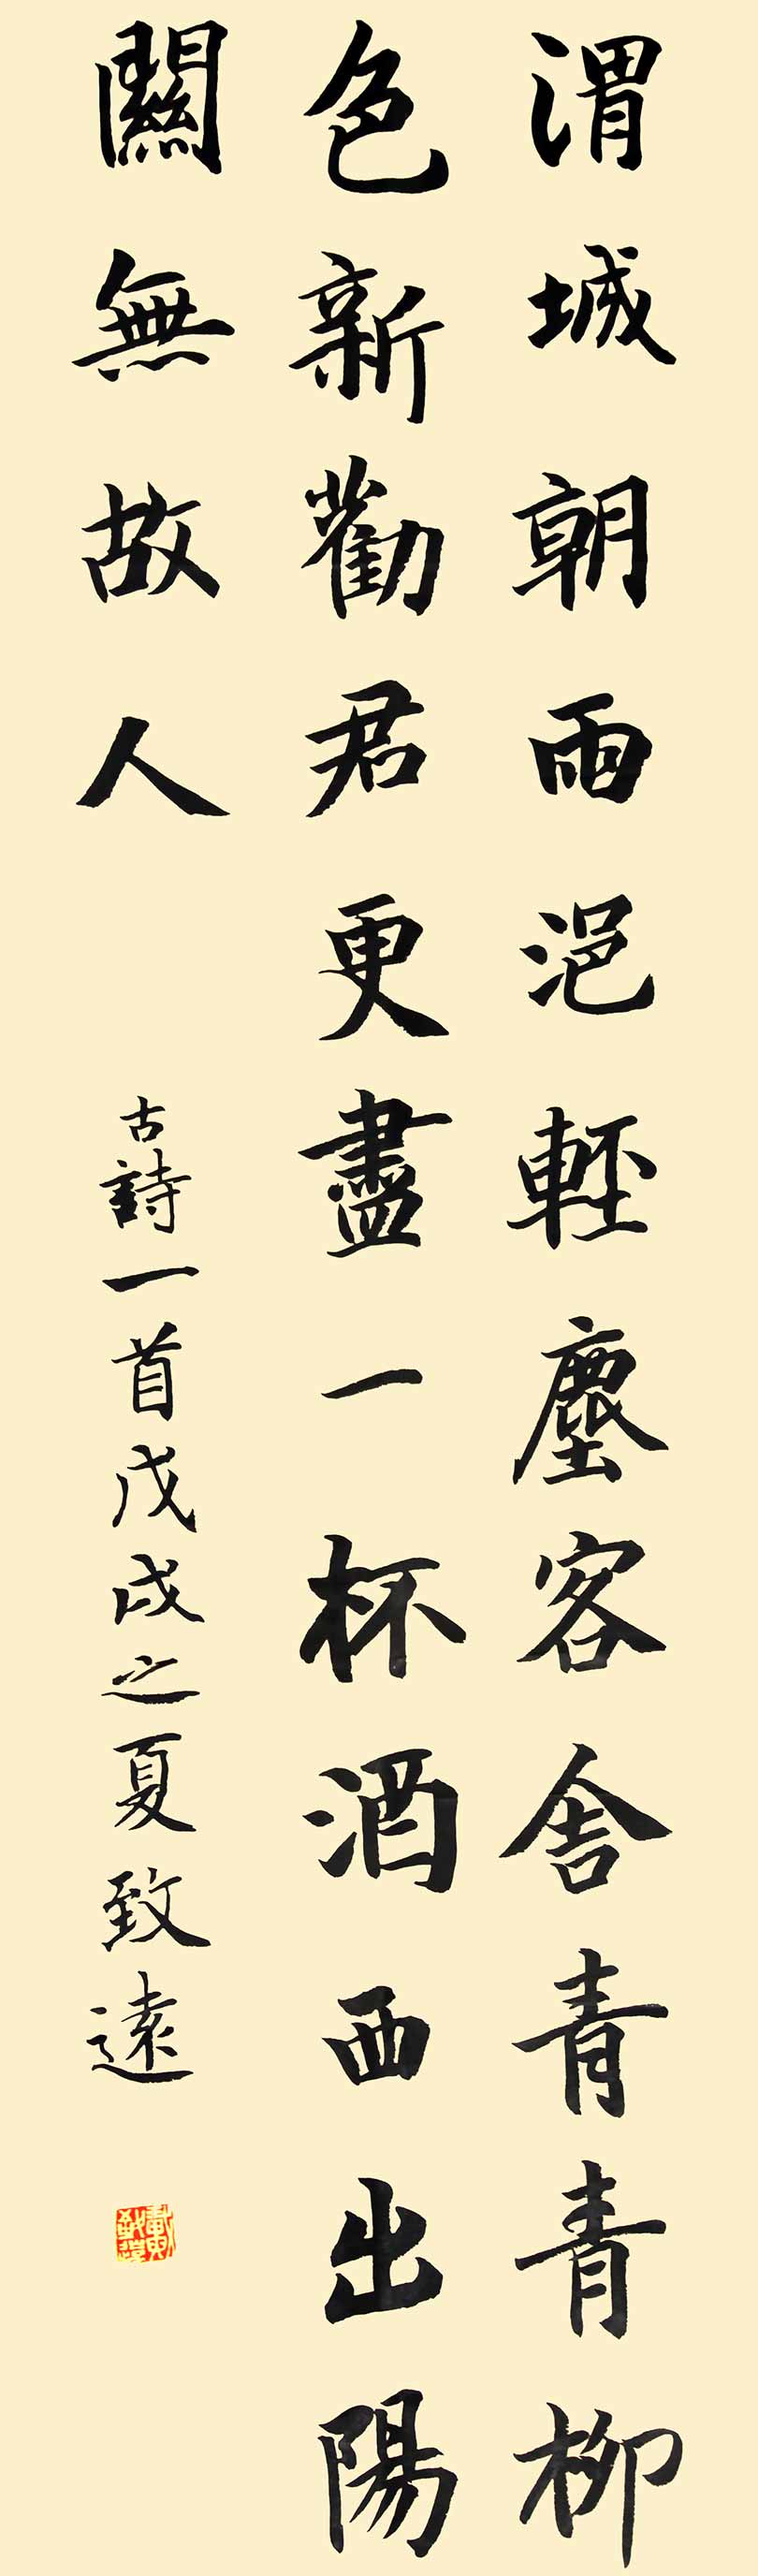 渭城朝雨浥輕塵客舍青青柳
色新勸君更盡一杯酒西出陽
關無故人
古詩一首戊戌之夏致遠